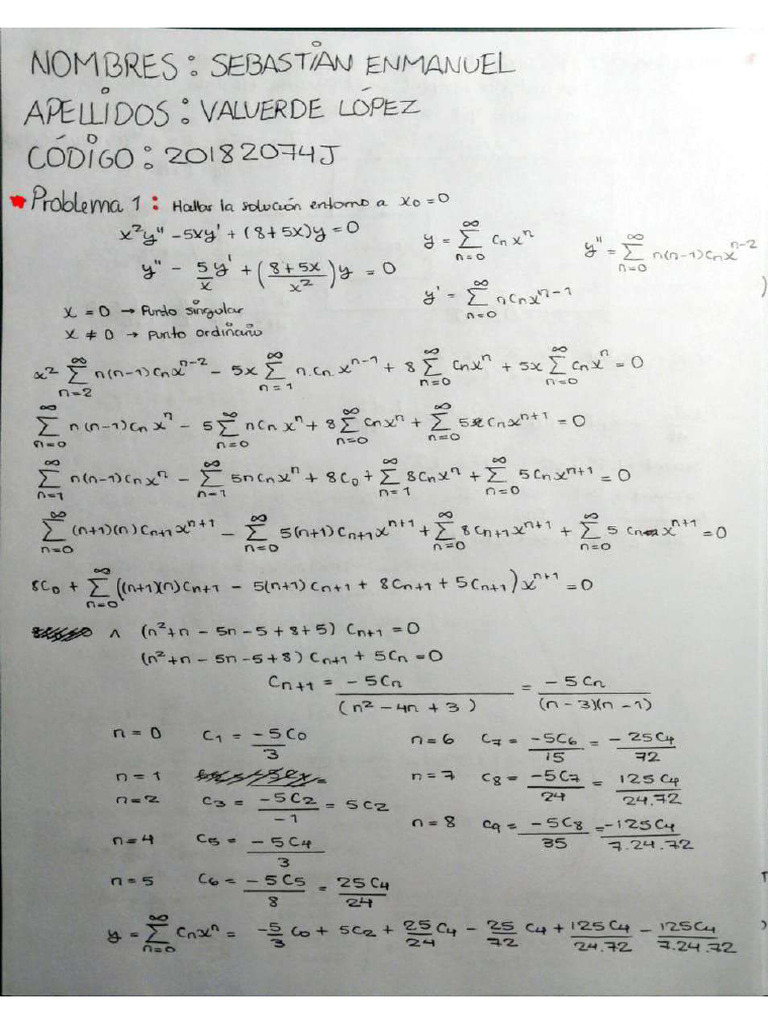 NOMBRES : SEBASTIAN ENMANUEL
APELLIDOS : VALVERDE LÓPEZ
CÓDIGO : 20182074J
Problema 1 : Hallar la solución entorno a x₀ = 0
x²y'' - 5xy' + (8+5x)y = 0
y = ∑_{n=0}^{∞} cₙxⁿ
y'' = ∑_{n=0}^{∞} n(n-1)cₙx^{n-2}
y'' - 5y'/x + ((8+5x)/x²)y = 0
y' = ∑_{n=0}^{∞} ncₙx^{n-1}
x = 0 → Punto singular
x ≠ 0 → Punto ordinario
x² ∑_{n=2}^{∞} n(n-1)cₙx^{n-2} - 5x ∑_{n=1}^{∞} n.cₙ.x^{n-1} + 8 ∑_{n=0}^{∞} cₙxⁿ + 5x ∑_{n=0}^{∞} cₙxⁿ = 0
∑_{n=0}^{∞} n(n-1)cₙxⁿ - 5 ∑_{n=0}^{∞} ncₙxⁿ + 8 ∑_{n=0}^{∞} cₙxⁿ + ∑_{n=0}^{∞} 5cₙx^{n+1} = 0
∑_{n=1}^{∞} n(n-1)cₙxⁿ - ∑_{n=1}^{∞} 5ncₙxⁿ + 8c₀ + ∑_{n=1}^{∞} 8cₙxⁿ + ∑_{n=0}^{∞} 5cₙx^{n+1} = 0
∑_{n=0}^{∞} (n+1)(n)cₙ₊₁x^{n+1} - ∑_{n=0}^{∞} 5(n+1)cₙ₊₁x^{n+1} + ∑_{n=0}^{∞} 8cₙ₊₁x^{n+1} + ∑_{n=0}^{∞} 5cₙx^{n+1} = 0
8c₀ + ∑_{n=0}^{∞} ((n+1)(n)cₙ₊₁ - 5(n+1)cₙ₊₁ + 8cₙ₊₁ + 5cₙ₊₁)x^{n+1} = 0
∧ (n²+n - 5n - 5 + 8 + 5) cₙ₊₁ = 0
(n²+n - 5n - 5 + 8) cₙ₊₁ + 5cₙ = 0
cₙ₊₁ = -5cₙ/(n² - 4n + 3) = -5cₙ/((n-3)(n-1))
n = 0 c₁ = -5c₀/3
n = 6 c₇ = -5c₆/15 = -25c₄/72
n = 1
n = 7 c₈ = -5c₇/24 = 125c₄/24.72
n = 2 c₃ = -5c₂/-1 = 5c₂
n = 8 c₉ = -5c₈/35 = -125c₄/7.24.72
n = 4 c₅ = -5c₄/3
n = 5 c₆ = -5c₅/8 = 25c₄/24
y = ∑_{n=0}^{∞} cₙxⁿ = -5/3 c₀ + 5c₂ + 25/24 c₄ - 25/72 c₄ + 125c₄/24.72 - 125c₄/7.24.72